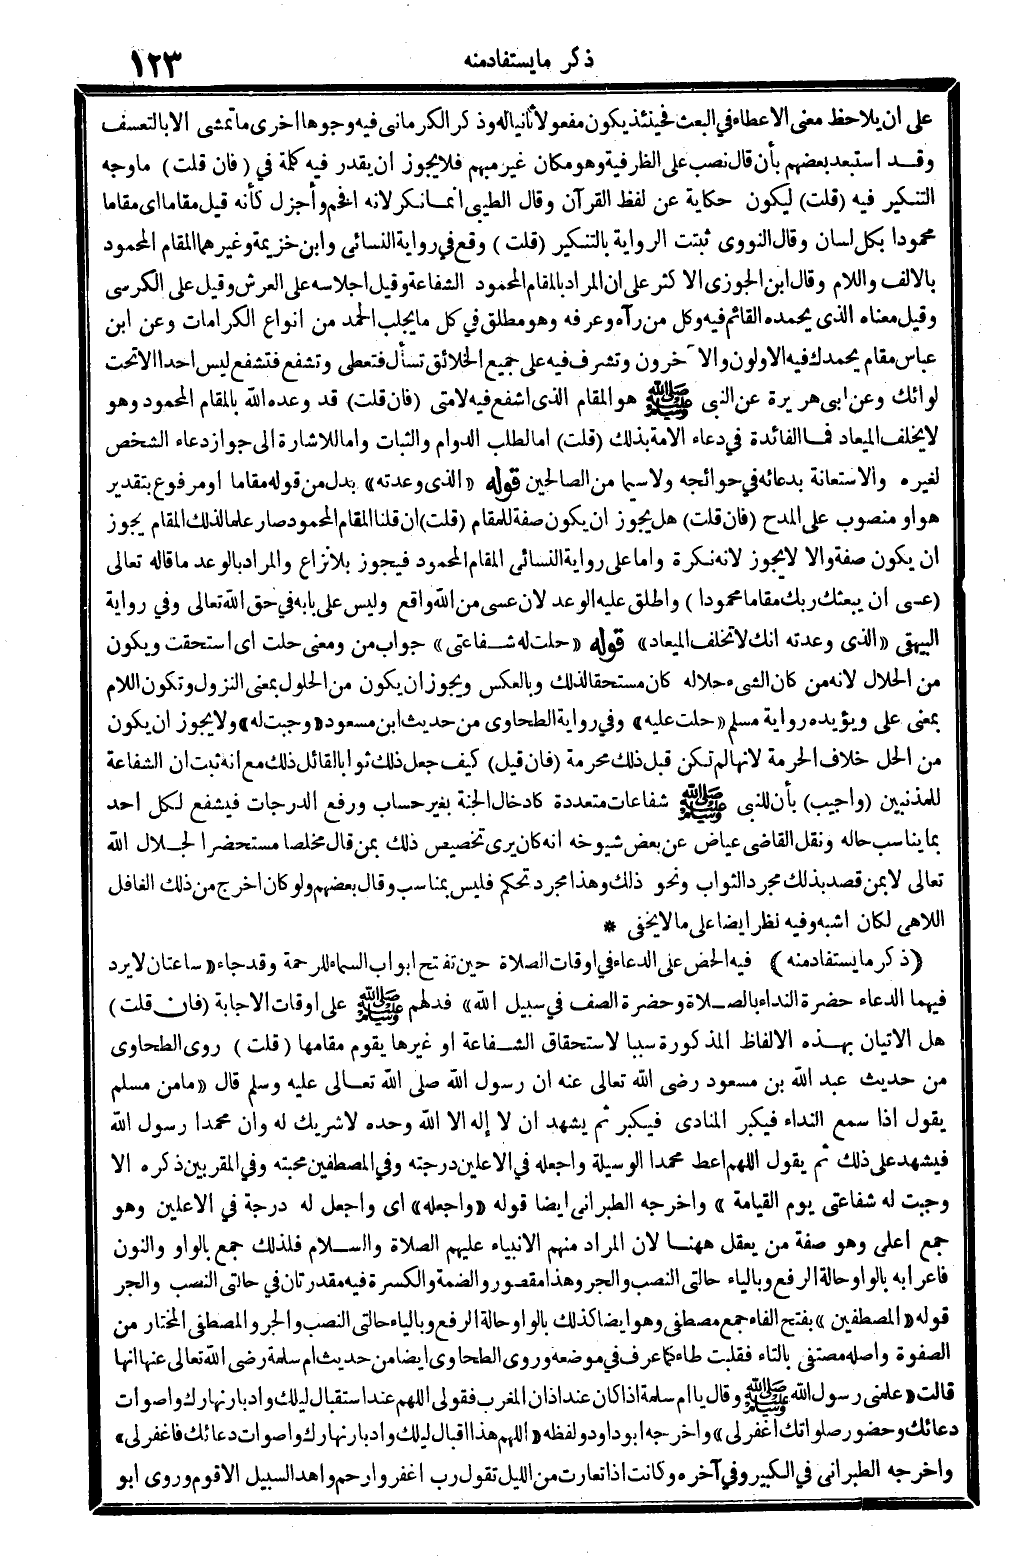 ذكر مايستفادمنه
١٢٣
على ان يلاحظ معنى الاعطاء في البعث فحينئذ يكون مفعولا ثانيا له وذكر الكرمانى فيه وجوها اخرى ماتمشى الا بالتعسف
وقد استبعد بعضهم بأن قال نصب على الظرفية وهو مكان غير مبهم فلا يجوز ان يقدر فيه كلمة في (فان قلت) ماوجه
التنكير فيه (قلت) ليكون حكاية عن لفظ القرآن وقال الطيبى انما نكر لانه افخم وأجزل كأنه قيل مقاما اى مقاما
محمودا بكل لسان وقال النووى ثبتت الرواية بالتنكير (قلت) وقع في رواية النسائى وابن خزيمة وغيرهما المقام المحمود
بالالف واللام وقال ابن الجوزى الاكثر على ان المراد بالمقام المحمود الشفاعة وقيل اجلاسه على العرش وقيل على الكرسى
وقيل معناه الذى يحمده القائم فيه وكل من رآه وعرفه وهو مطلق في كل مايجلب الحمد من انواع الكرامات وعن ابن
عباس مقام يحمدك فيه الاولون والآخرون وتشرف فيه على جميع الخلائق تسأل فتعطى وتشفع فتشفع ليس احدا الا تحت
لوائك وعن ابى هريرة عن النبى ﷺ هو المقام الذى اشفع فيه لامتى (فان قلت) قد وعده الله بالمقام المحمود وهو
لا يخلف الميعاد فما الفائدة في دعاء الامة بذلك (قلت) اما لطلب الدوام والثبات واما للاشارة الى جواز دعاء الشخص
لغيره والاستعانة بدعائه في حوائجه ولاسيما من الصالحين قوله «الذى وعدته» بدل من قوله مقاما او مرفوع بتقدير
هو او منصوب على المدح (فان قلت) هل يجوز ان يكون صفة للمقام (قلت) ان قلنا المقام المحمود صار علما لذلك المقام يجوز
ان يكون صفة والا لا يجوز لانه نكرة واما على رواية النسائى المقام المحمود فيجوز بلا نزاع والمراد بالوعد ماقاله تعالى
(عسى ان يبعثك ربك مقاما محمودا) واطلق عليه الوعد لان عسى من الله واقع وليس على بابه في حق الله تعالى وفي رواية
البيهقى «الذى وعدته انك لا تخلف الميعاد» قوله «حلت له شفاعتى» جواب من ومعنى حلت اى استحقت ويكون
من الحلال لانه من كان الشىء حلاله كان مستحقا لذلك وبالعكس ويجوز ان يكون من الحلول بمعنى النزول وتكون اللام
بمعنى على ويؤيده رواية مسلم «حلت عليه» وفي رواية الطحاوى من حديث ابن مسعود «وجبت له» ولا يجوز ان يكون
من الحل خلاف الحرمة لانها لم تكن قبل ذلك محرمة (فان قيل) كيف جعل ذلك ثوابا لقائل ذلك مع انه ثبت ان الشفاعة
للمذنبين (واجيب) بأن للنبى ﷺ شفاعات متعددة كادخال الجنة بغير حساب ورفع الدرجات فيشفع لكل احد
بما يناسب حاله ونقل القاضى عياض عن بعض شيوخه انه كان يرى تخصيص ذلك بمن قال مخلصا مستحضرا لجلال الله
تعالى لا بمن قصد بذلك مجرد الثواب ونحو ذلك وهذا مجرد تحكم فليس بمناسب وقال بعضهم ولو كان اخرج من ذلك الغافل
اللاهى لكان اشبه وفيه نظر ايضا على ما لا يخفى *
(ذكر مايستفادمنه) فيه الحض على الدعاء في اوقات الصلاة حين تفتح ابواب السماء للرحمة وقد جاء «ساعتان لا يرد
فيهما الدعاء حضرة النداء بالصلاة وحضرة الصف في سبيل الله» فدلهم ﷺ على اوقات الاجابة (فان قلت)
هل الاتيان بهذه الالفاظ المذكورة سببا لاستحقاق الشفاعة او غيرها يقوم مقامها (قلت) روى الطحاوى
من حديث عبد الله بن مسعود رضى الله تعالى عنه ان رسول الله صلى الله تعالى عليه وسلم قال «مامن مسلم
يقول اذا سمع النداء فيكبر المنادى فيكبر ثم يشهد ان لا إله الا الله وحده لاشريك له وان محمدا رسول الله
فيشهد على ذلك ثم يقول اللهم اعط محمدا الوسيلة واجعله في الاعلين درجته وفي المصطفين محبته وفي المقربين ذكره الا
وجبت له شفاعتى يوم القيامة» واخرجه الطبرانى ايضا قوله «واجعله» اى واجعل له درجة في الاعلين وهو
جمع أعلى وهو صفة من يعقل ههنا لان المراد منهم الانبياء عليهم الصلاة والسلام فلذلك جمع بالواو والنون
فاعرابه بالواو حالة الرفع وبالياء حالتى النصب والجر وهذا مقصور والضمة والكسرة فيه مقدرتان في حالتى النصب والجر
قوله «المصطفين» بفتح الفاء جمع مصطفى وهو ايضا كذلك بالواو حالة الرفع وبالياء حالتى النصب والجر والمصطفى المختار من
الصفوة واصله مصتفى بالتاء فقلبت طاء كما عرف في موضعه وروى الطحاوى ايضا من حديث ام سلمة رضى الله تعالى عنها انها
قالت «علمنى رسول الله ﷺ وقال يا ام سلمة اذا كان عند اذان المغرب فقولى اللهم عند استقبال ليلك وادبار نهارك واصوات
دعائك وحضور صلواتك اغفر لى» واخرجه ابو داود ولفظه «اللهم هذا اقبال ليلك وادبار نهارك واصوات دعائك فاغفر لى»
واخرجه الطبرانى في الكبير وفي آخره وكانت اذا تعارت من الليل تقول رب اغفر وارحم واهد السبيل الاقوم وروى ابو